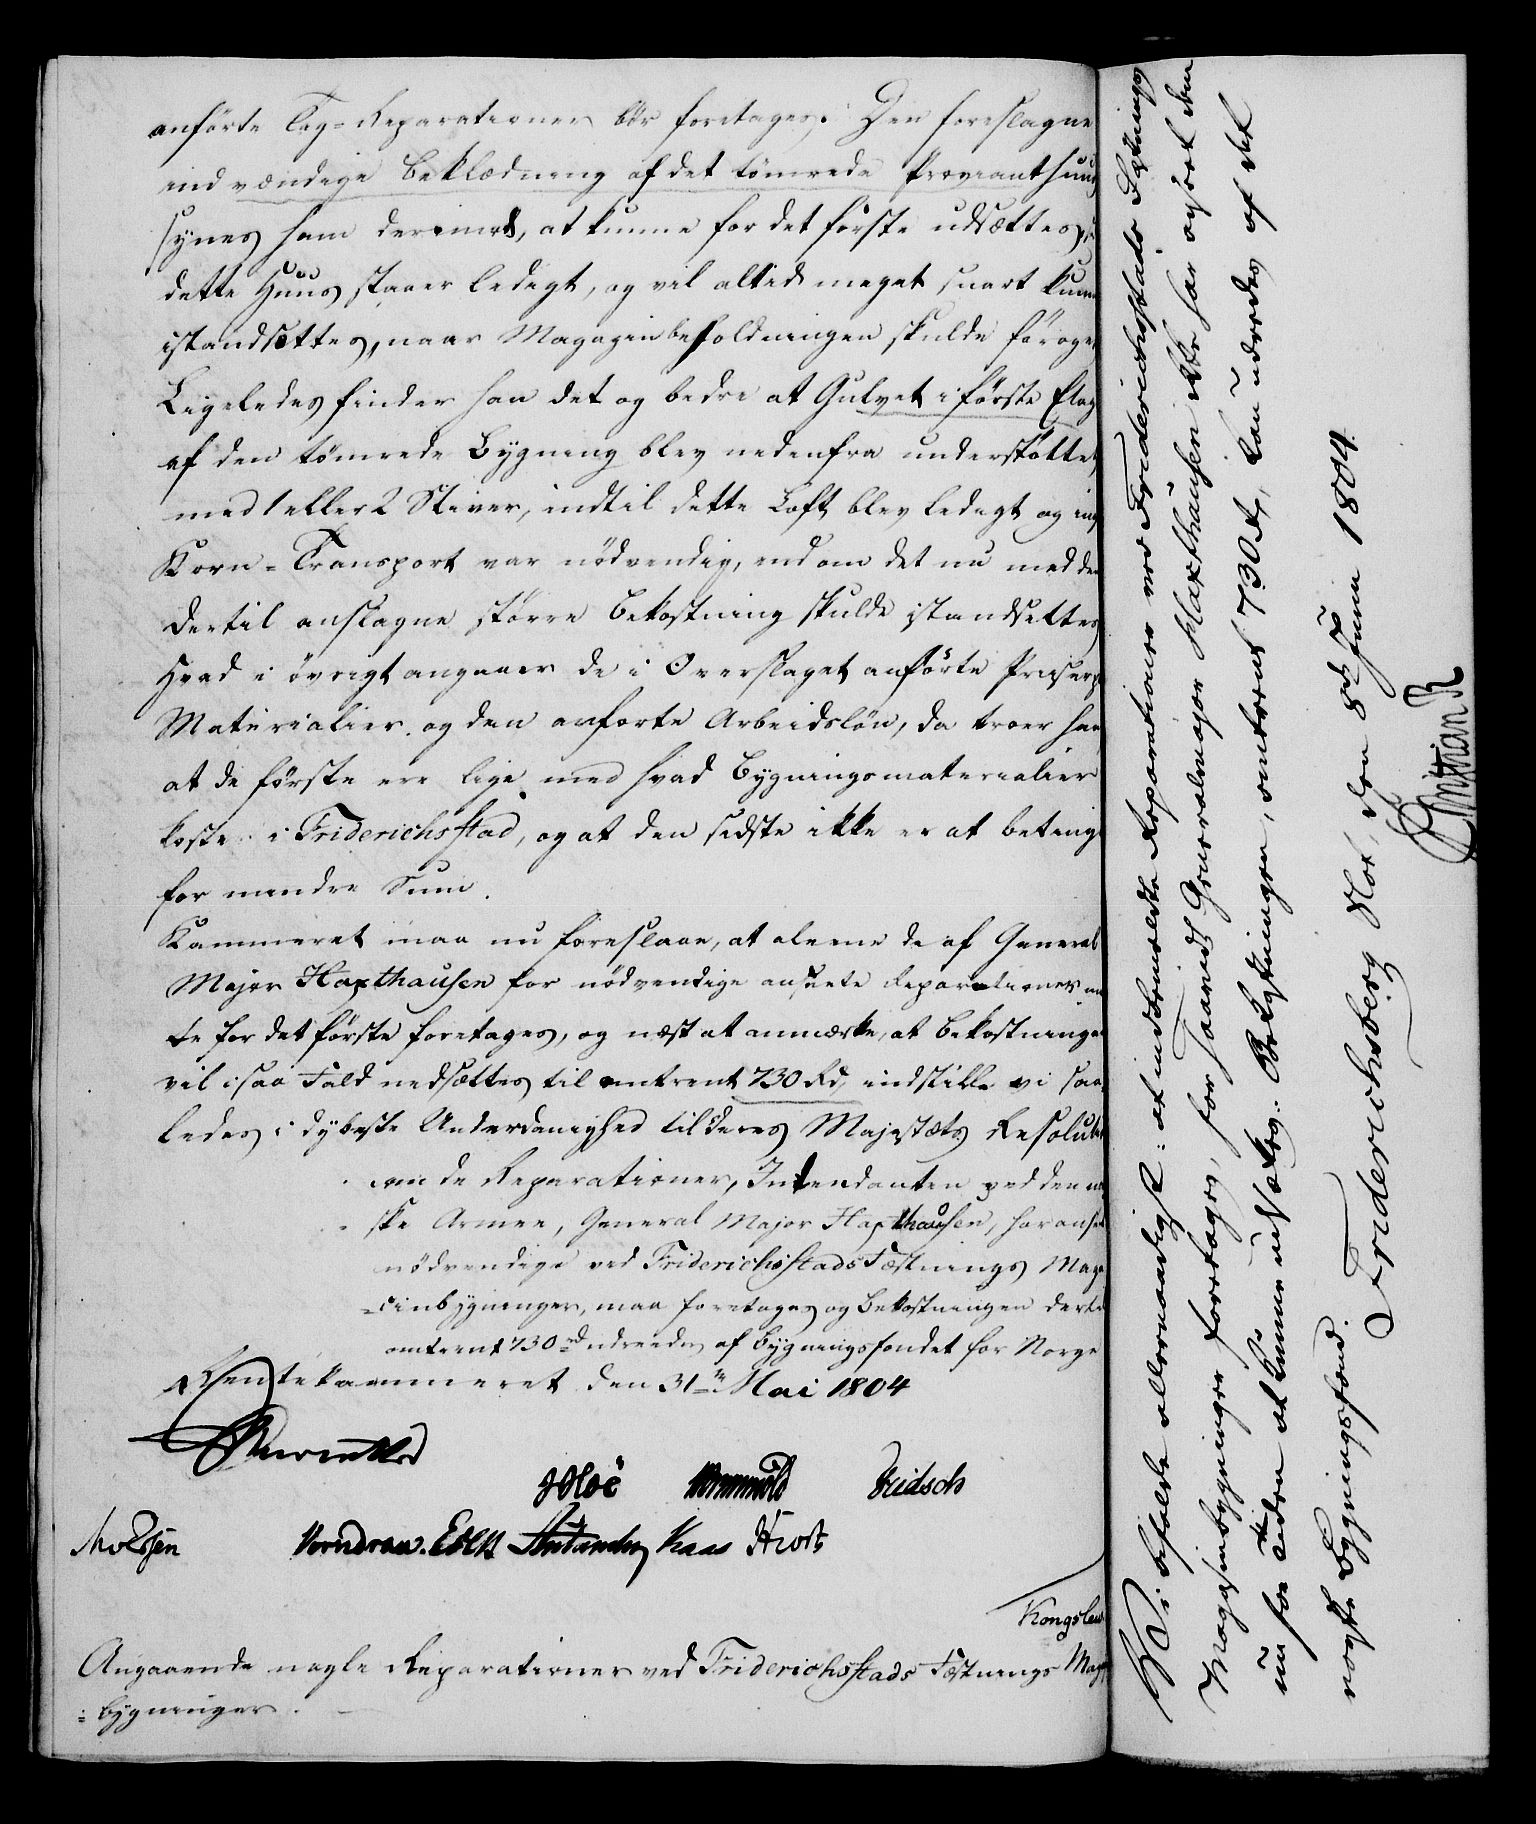 anförte Tag-Reparationer bör foretages. Den foreslagne
indvændige Beklædning af det tömrede Provianthuus
synes ham derimod, at kunne for det förste udsættes,
dette Huus staaer ledigt, og vil altid meget snart kunne
istandsættes, naar Magazinbeholdningen skulde foröges
Ligeledes finder han det og bedre at Gulvet i förste Etage
af den tömrede Bygning blev nedenfra understöttet
med 1 eller 2 Stiver, indtil dette Loft blev ledigt og ing
Korn-Transport var nödvendig, end om det nu med den
dertil anslagne större Bekostning skulde istandsættes
Hvad i övrigt angaaer de i Overslaget anförte Priser p
Materialier og den anforte Arbeidslön, da troer han
at de förste ere lige med hvad Bygningsmaterialier
koste i Friderichsstad, og at den sidste ikke er at betinge
for mindre Sum.
Kammeret maa nu foreslaae, at alene de af General
Major Haxthausen for nödvendige ansete Reparationer maa
te for det förste foretages, og næst at anmærke, at Bekostningen
vil i saa Fald nedsættes til omtrent 730 Rd, indstille vi saa
ledes i dybeste Underdanighed til Deres Majestæts Resolution
om de Reparationer, Intendanten ved den nor
ske Armee, General Major Haxthausen, har anseet
nödvendige ved Friderichsstads Fæstnings Maga
zinbygninger, maa foretages og Bekostningen dertil
omtrent 730 rd udredes af Bygningsfondet for Norge
Rentekammeret den 31te Mai 1804
Reventlow
Hoë Wormskiold Fridsch
Moldsen Vorndran. Kaas Hiort
Kongslew
Angaaende nogle Reparationer ved Friderichsstads Fæstnings Mag
bygninger.
Vi bifalde allernaadigst: at indbemeldte Reparationer ved Friderichsstads Fæstnings
Magazinbygninger foretages, for saavidt Generalmajor Haxthausen ikke har anseet dem
nu for Tiden at kunne udsættes. Bekostningen, omtrent 730 Rd, kan udredes af det
norske Bygningsfond.
Friderichsberg Slot, den 8de Juni 1804
Christian R